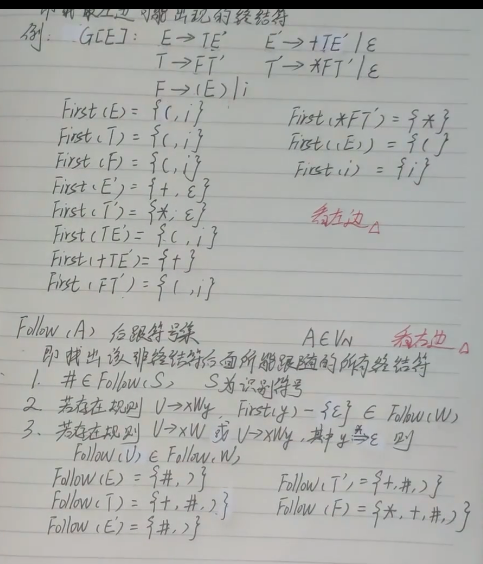 即 最左边可能出现的终结符
例: G[E]: E→TE' E'→+TE'|ε
T→FT' T'→*FT'|ε
F→(E)|i
First(E)={(,i} First(*FT')={*}
First(T)={(,i} First((E))={(}
First(F)={(,i} First(i)={i}
First(E')={+,ε}
First(T')={*,ε} 看左边△
First(TE')={(,i}
First(+TE')={+}
First(FT')={(,i}
Follow(A) 后跟符号集 A∈VN 看右边△
即找出该非终结符后面所能跟随的所有终结符
1. #∈Follow(S), S为识别符号
2. 若存在规则 U→xWy, First(y)-{ε}∈Follow(W)
3. 若存在规则 U→xW 或 U→xWy,其中y⇒*ε 则
Follow(U)∈Follow(W)
Follow(E)={#,)} Follow(T')={+,#,)}
Follow(T)={+,#,)} Follow(F)={*,+,#,)}
Follow(E')={#,)}